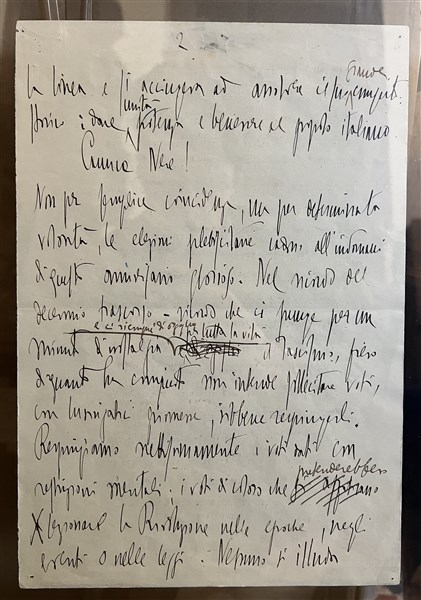 2
la linea e si accingeva ad assolvere il grande
storico: dare unità potenza e benessere al popolo italiano
Camicie Nere!
Non per semplice coincidenza, ma per determinata
volontà, le elezioni plebiscitarie cadono all'indomani
di questo anniversario glorioso. Nel ricordo del
decennio trascorso - ricordo che ci punge per un
minuto di nostalgia e ci riempie di orgoglio per tutta la vita il Fascismo, fiero
di quanto ha compiuto non intende sollecitare voti,
con lusingatrici promesse, sibbene respingerli.
Respingiamo nettamente i voti dati con
restrizioni mentali: i voti di coloro che pretenderebbero
la Rivoluzione nelle epoche, negli
eventi o nelle leggi. Nessuno si illuda